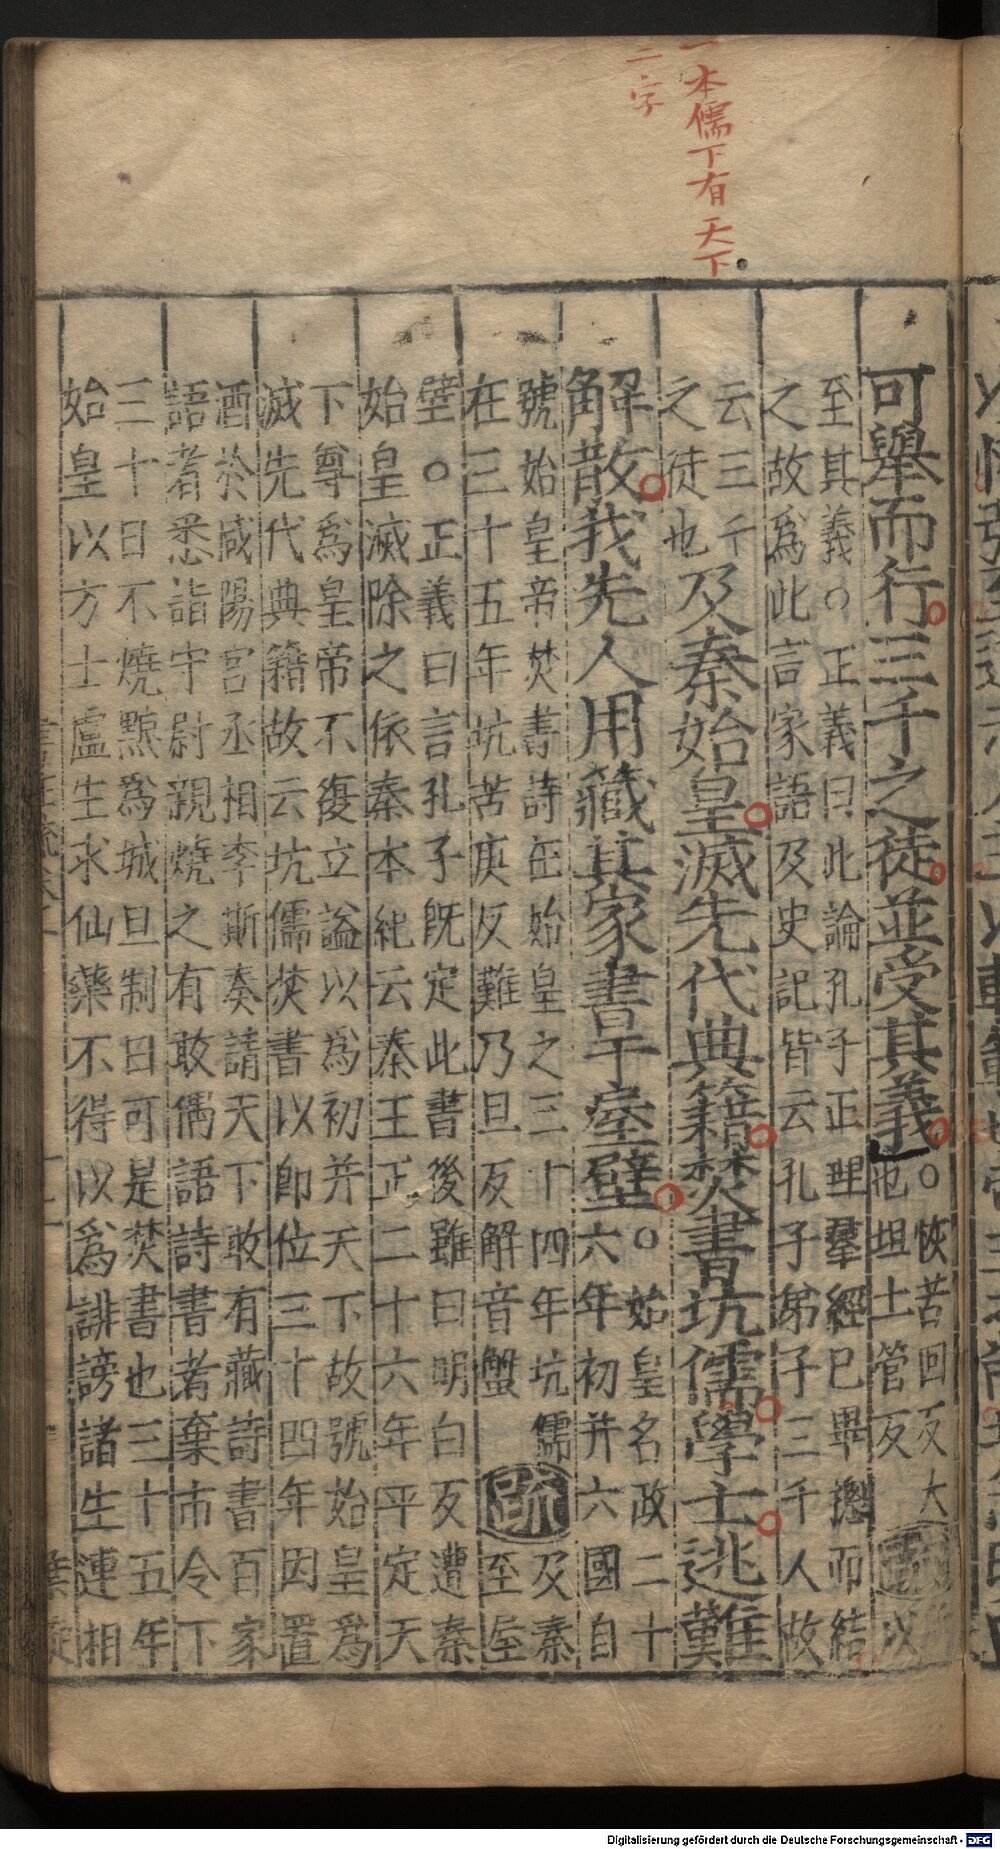 一本儒下有天下
二字
可舉而行三千之徒並受其義
恢苦回反大
也坦土管反
疏
以
至其義○正義曰此論孔子正理羣經已畢揔而結
之故爲此言家語及史記皆云孔子弟子三千人故
云三千
之徒也
及秦始皇滅先代典籍焚書坑儒學士逃難
解散我先人用藏其家書于屋壁
○始皇名政二十
六年初并六國自
號始皇帝焚書詩在始皇之三十四年坑儒
在三十五年坑苦庚反難乃旦反解音蟹
疏
及秦
至屋
壁○正義曰言孔子既定此書後雖曰明白反遭秦
始皇滅除之依秦本紀云秦王正二十六年平定天
下尊爲皇帝不復立謚以爲初并天下故號始皇爲
滅先代典籍故云坑儒焚書以即位三十四年因置
酒於咸陽宮丞相李斯奏請天下敢有藏詩書百家
語者悉詣守尉親燒之有敢偶語詩書者棄市令下
三十日不燒黥爲城旦制曰可是焚書也三十五年
始皇以方士盧生求仙藥不得以爲誹謗諸生連相
Digitalisierung gefördert durch die Deutsche Forschungsgemeinschaft - DFG